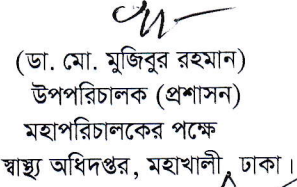 (ডা. মো. মুজিবুর রহমান)
উপপরিচালক (প্রশাসন)
মহাপরিচালকের পক্ষে
স্বাস্থ্য অধিদপ্তর, মহাখালী, ঢাকা।